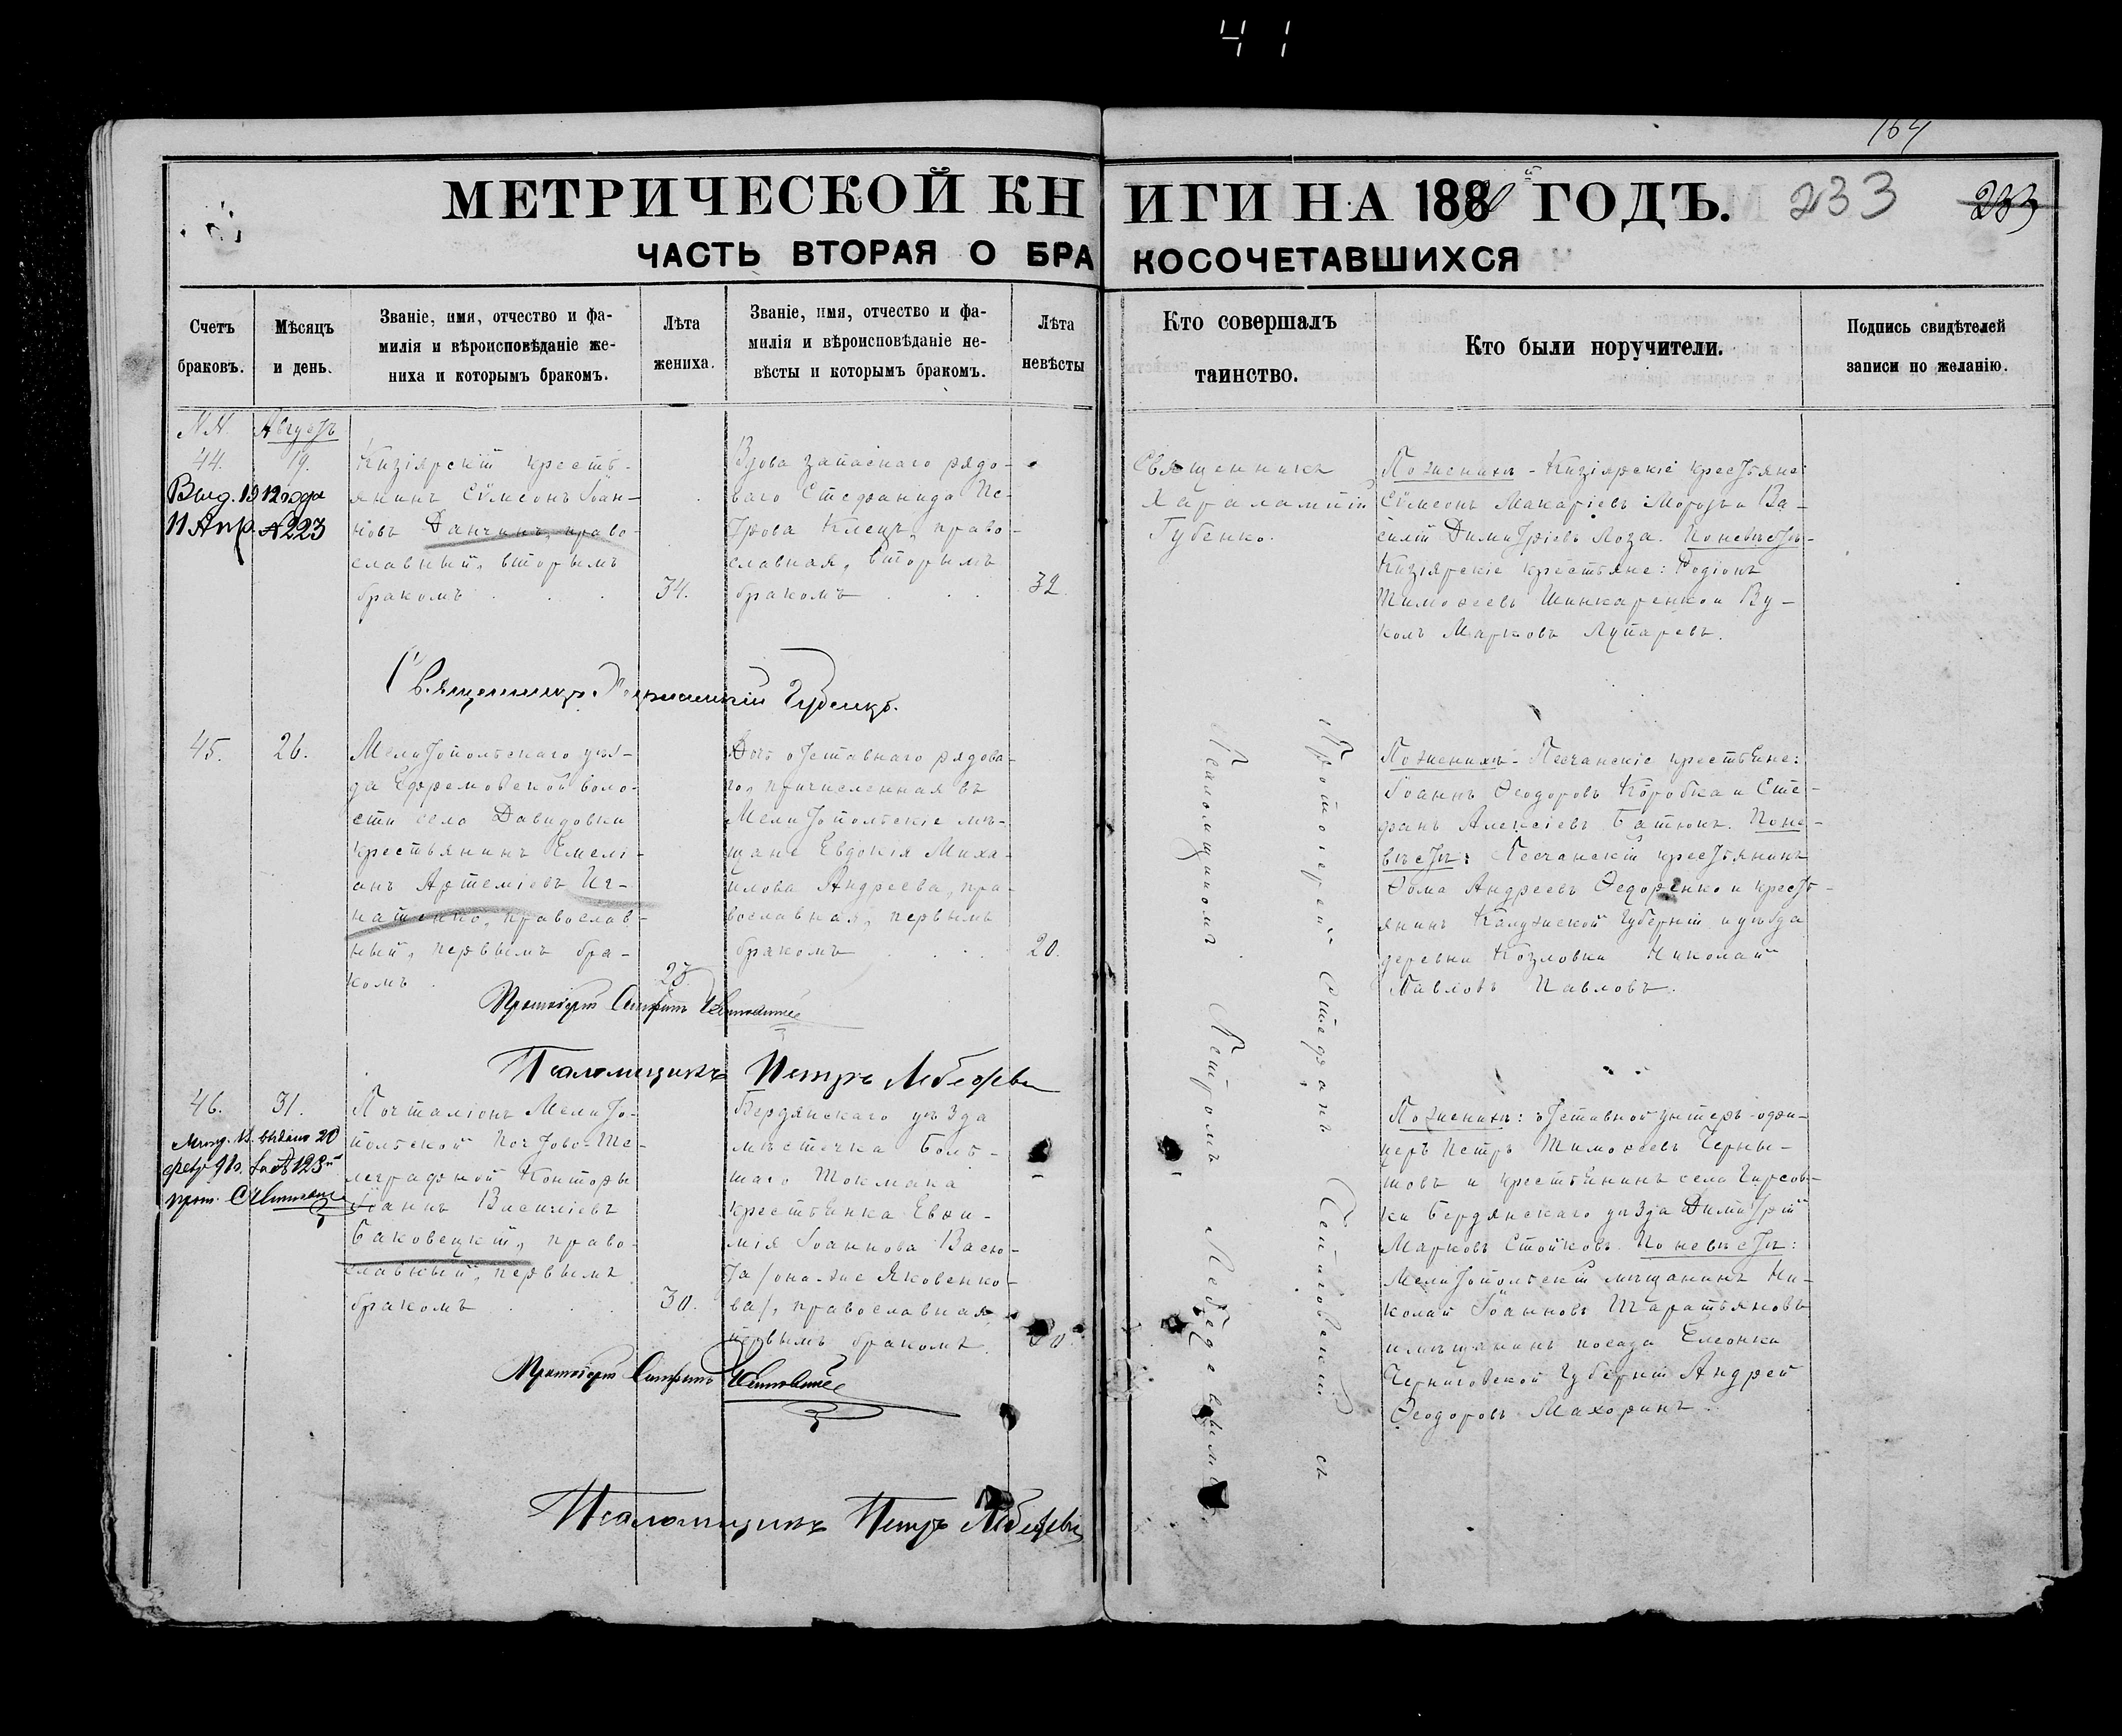 41
164
МЕТРИЧЕСКОЙ КНИГИ НА 188 ГОДЪ. 233 233
ЧАСТЬ ВТОРАЯ О БРАКОСОЧЕТАВШИХСЯ
Счетъ браковъ.
Мѣсяцъ и день.
Званіе, имя, отчество и фа-
милія и вѣроисповѣданіе же-
ниха и которымъ бракомъ.
Лѣта жениха.
Званіе, имя, отчество и фа-
милія и вѣроисповѣданіе не-
вѣсты и которымъ бракомъ.
Лѣта невѣсты
Кто совершалъ таинство.
Кто были поручители.
Подпись свидѣтелей записи по желанію.
NN. Августъ
44. 19.
Выд. 1912 года
11 Апр. №223
Кизіярскій кресть-
янинъ Сѵмеонъ Іоан-
новъ Данчинъ, право-
славный, вторымъ
бракомъ
34.
Вдова запаснаго рядо-
ваго Стефанида Пе-
трова Клецъ, право-
славная, вторымъ
бракомъ
32.
Священникъ
Харалампій
Губенко.
По женихѣ - Кизіярскіе крестьяне:
Сѵмеонъ Макаріевъ Морозъ и Ва-
силій Димитріевъ Лоза. По невѣстѣ-
Кизіярскіе крестьяне: Родіонъ
Тимоѳеевъ Шинкаренко и Ву-
колъ Марковъ Лупаревъ.
Священникъ Харлампій Губенко.
45. 26.
Мелитопольскаго уѣз-
да Ефремовской воло-
сти села Давидовки
крестьянинъ Емелі-
анъ Артеміевъ Иг-
натенко, православ-
ный, первымъ бра-
комъ
25.
Дочь отставнаго рядова-
го, причисленная въ
Мелитопольскіе мѣ-
щане Евдокія Миха-
илова Андреева, пра-
вославная, первымъ
бракомъ
20.
По женихѣ - Песчанскіе крестьяне:
Іоаннъ Ѳеодоровъ Коробка и Сте-
фанъ Алексіевъ Батюкъ. По не-
вѣстѣ: Песчанскій крестьянинъ
Ѳома Андреевъ Ѳедоренко и крест-
янинъ Калужской губерніи и уѣзда
деревни Козловки Николай
Павловъ Павловъ.
Протоіерей Стефанъ
Псаломщикъ Петръ Лебедевъ
Протоіерей Стефанъ съ
Псаломщикомъ Петромъ Лебедевымъ
46. 31.
Почталіонъ Мелито-
польской Почтово-Те-
леграфной Конторы
Іоаннъ Василіевъ
Баковецкій, право-
славный, первымъ
бракомъ
30.
Бердянскаго уѣзда
мѣстечка Боль-
шаго Токмака
крестьянка Евѳи-
мія Іоаннова Васю-
та /она-же Яковенко-
ва/, православная,
первымъ бракомъ.
По женихѣ: отставной унтеръ-офи-
церъ Петръ Тимоѳеевъ Черны-
шовъ и крестьянинъ села Гирсов-
ки Бердянскаго уѣзда Димитрій
Марковъ Стойковъ. По невѣстѣ:
Мелитопольскій мѣщанинъ Ни-
колай Іоанновъ Таратьяновъ
и мѣщанинъ посада Елеонки
Черниговской губерніи Андрей
Ѳеодоровъ Махоринъ.
Протоіерей Стефанъ
Псаломщикъ Петръ Лебедевъ